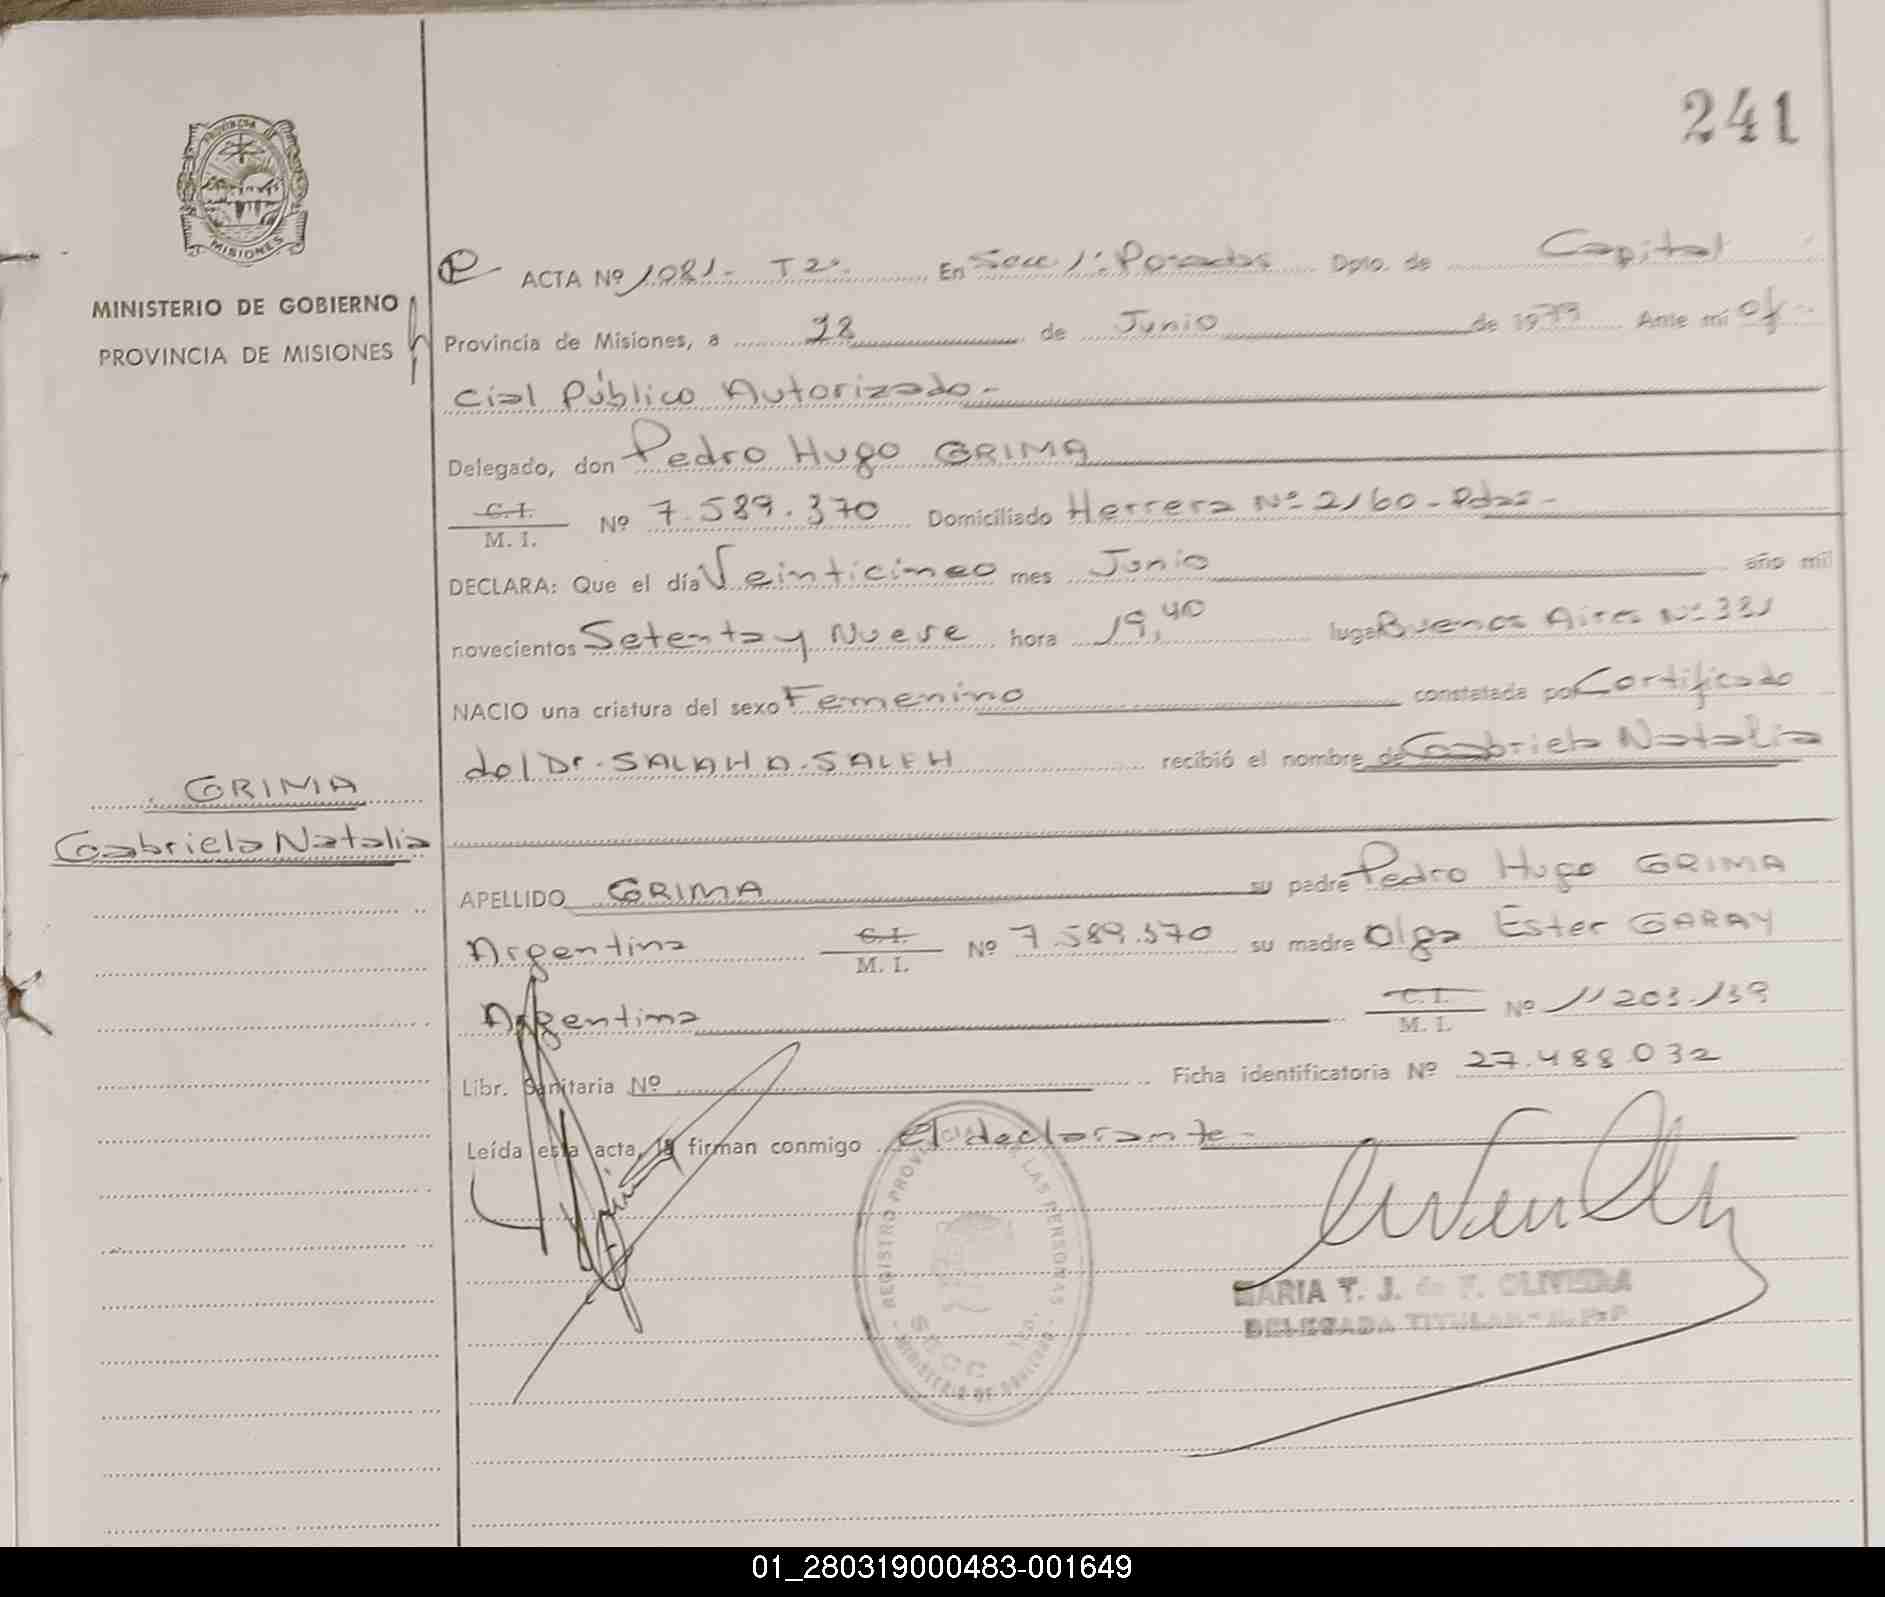 241
PROVINCIA DE
MISIONES
MINISTERIO DE GOBIERNO
PROVINCIA DE MISIONES
ACTA Nº 1081- T2º. En Secc 1º: Posadas Dpto. de Capital
Provincia de Misiones, a 28 de Junio de 1979 Ante mi Ofi-
cial Público Autorizado-
Delegado, don Pedro Hugo GRIMA
C.I.
M. I. Nº 7.589.370 Domiciliado Herrera Nº 2160-Pdas-
DECLARA: Que el día Veinticinco mes Junio año mil
novecientos Setenta y Nueve hora 19,40 lugar Buenos Aires Nº 331
NACIO una criatura del sexo Femenino constatada por Certificado
del Dr. SALAH A. SALEH recibió el nombre de Gabriela Natalia
GRIMA
Gabriela Natalia
APELLIDO GRIMA su padre Pedro Hugo GRIMA
Argentina C.I. M. I. Nº 7.589.370 su madre Olga Ester GARAY
Argentina C.I. M. I. Nº 11203.139
Libr. Sanitaria Nº Ficha identificatoria Nº 27.488.032
Leída esta acta, la firman conmigo el declarante-
REGISTRO PROVINCIAL DE LAS PERSONAS
SECC. 1ra.
MINISTERIO DE GOBIERNO
MARIA T. J. de F. OLIVEIRA
DELEGADA TITULAR - R.P.P
01_280319000483-001649